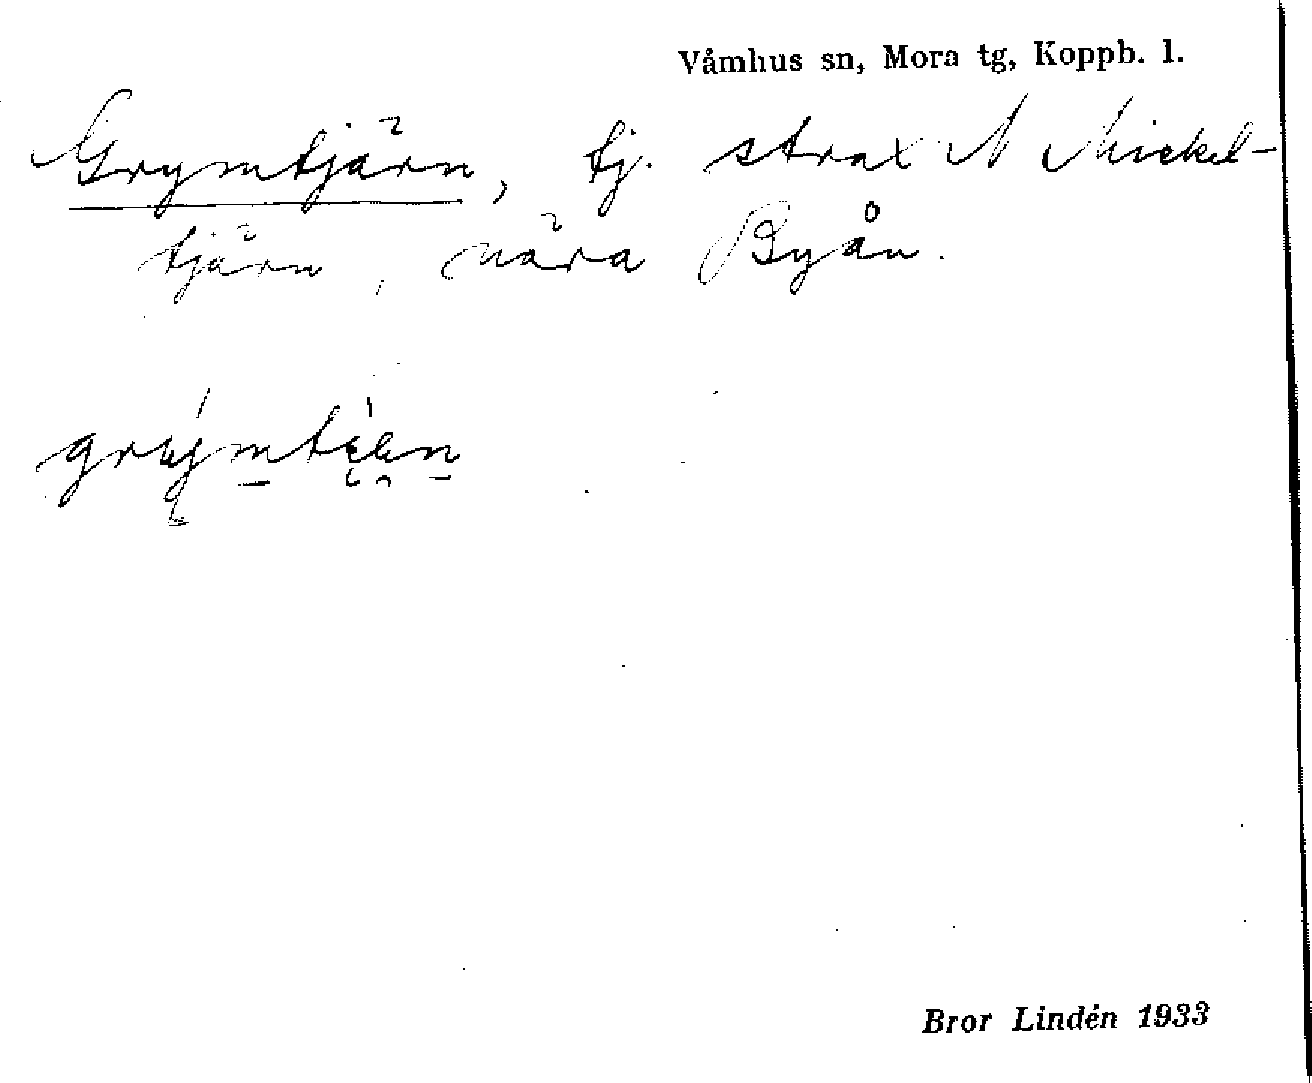 Våmhus sn, Mora tg, Koppb. l.
Grymtjärn, tj. strax N Mickel-
tjärn, nära Byån.
Bror Lindén 1933